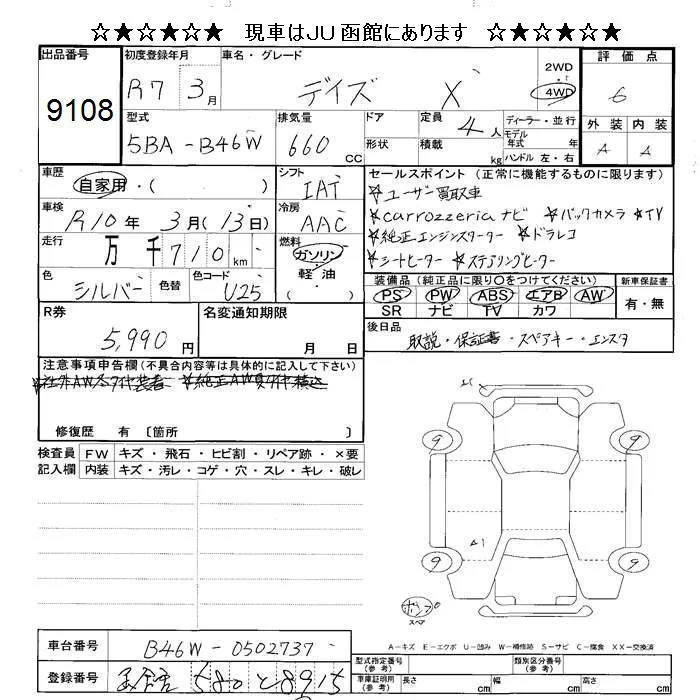 ☆★☆★☆★ 現車はJU函館にあります ☆★☆★☆★
出品番号
9108
初度登録年月
R7 3月
車名・グレード
デイズ X
2WD
4WD
評価点
6
外装 内装
A A
型式
5BA-B46W
排気量
660 CC
ドア
形状
定員
4人
積載
kg
ディーラー・並行
モデル年式 年式
ハンドル 左・右
車歴
自家用・( )
シフト
IAT
車検
R10年 3月(13日)
冷房
AAC
走行
万 千 710 km
燃料
ガソリン・軽油・( )
色
シルバー
色替
色コード
U25
セールスポイント (正常に機能するものに限ります)
☆ユーザー買取車
☆carrozzeriaナビ ☆バックカメラ ☆TV
☆純正エンジンスターター ☆ドラレコ
☆シートヒーター ☆ステアリングヒーター
装備品 (純正品に限り○をつけてください)
PS PW ABS エアB AW
SR ナビ TV カワ
新車保証書
有・無
R券
5,990円
名変通知期限
月 日
後日品
取説・保証書・スペアキー・エンスタ
注意事項申告欄(不具合内容等は具体的に記入して下さい)
修復歴 有 〔箇所 〕
検査員記入欄
FW キズ・飛石・ヒビ割・リペア跡・×要
内装 キズ・汚レ・コゲ・穴・スレ・キレ・破レ
9 9
A1
9 9
ボンプ
スペア
A-キズ E-エクボ U-凹み W-補修跡 S-サビ C-腐食 XX-交換済
車台番号
B46W-0502737
登録番号
函館 580 と 8915
型式指定番号(参考)
類別区分番号(参考)
車庫証明用(参考)
長さ cm 幅 cm 高さ cm